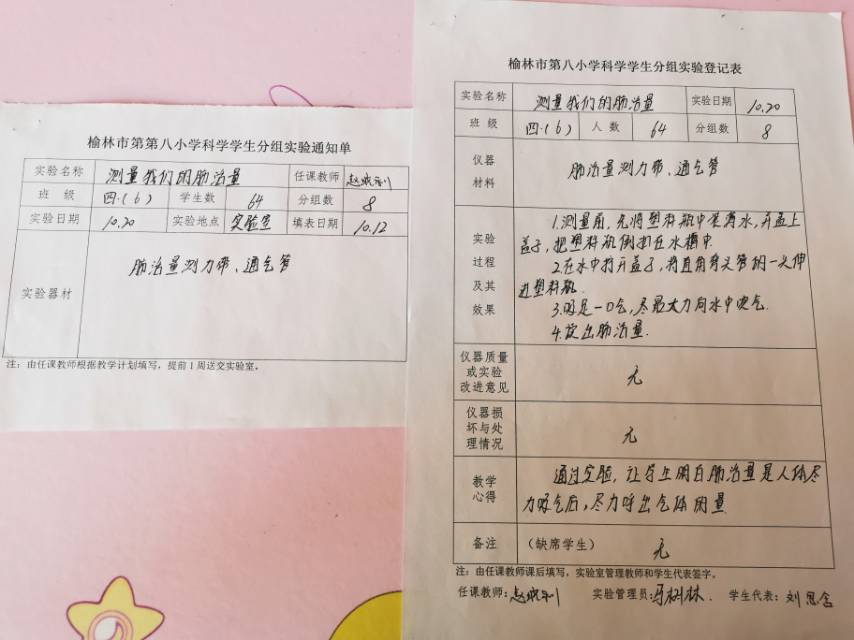 榆林市第第八小学科学学生分组实验通知单
实验名称 测量我们的肺活量 任课教师
班 级 四·(6) 学生数 64 分组数 8
实验日期 10.20 实验地点 实验室 填表日期 10.12
实验器材 肺活量测力带、通气管
注：由任课教师根据教学计划填写，提前1周送交实验室。
榆林市第八小学科学学生分组实验登记表
实验名称 测量我们的肺活量 实验日期 10.20
班 级 四·(6) 人 数 64 分组数 8
仪器
材料
肺活量测力带、通气管
实验
过程
及其
效果
1.测量前，先将塑料瓶中装满水，开盖上
盖子，把塑料瓶倒扣在水槽中.
2.在水中打开盖子，将直角弯头管的一头伸
进塑料瓶.
3.吸足一口气，尽最大力向水中吹气.
4.读出肺活量.
仪器质量
或实验
改进意见
无
仪器损
坏与处
理情况
无
教学
心得
通过实验，让学生明白肺活量是人体尽
力吸气后，尽力呼出气体用量
备注 (缺席学生) 无
注：由任课教师课后填写，实验室管理教师和学生代表签字。
任课教师： 实验管理员： 学生代表：刘思含